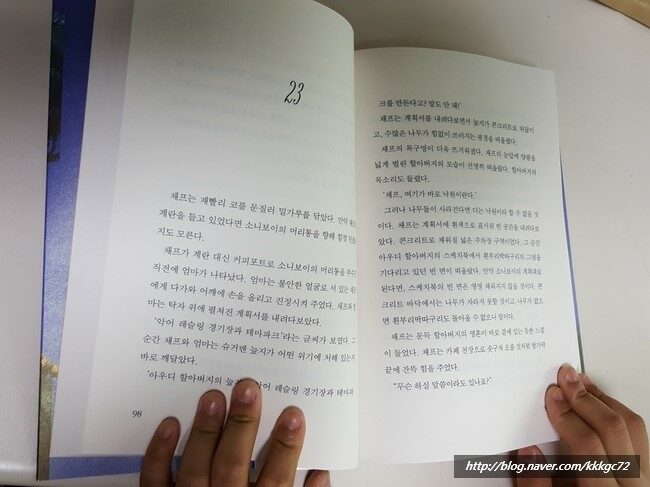 23
채프는 재빨리 코를 문질러 밀가루를 닦았다. 만약
계란을 들고 있었다면 소니보이의 머리통을 향해 힘껏
지도 모른다.
채프가 계란 대신 커피포트로 소니보이의 머리통을
직전에 엄마가 나타났다. 엄마는 불안한 얼굴로 서 있는
에게 다가와 어깨에 손을 올리고 진정시켜 주었다. 채프와
마는 탁자 위에 펼쳐진 계획서를 내려다보았다.
'악어 레슬링 경기장과 테마파크'라는 글씨가 보였다. 그
순간 채프와 엄마는 슈거맨 늪지가 어떤 위기에 처해 있는지
바로 깨달았다.
'아우디 할아버지의 악어 레슬링 경기장과 테마파
98
크를 만든다고? 말도 안 돼!'
채프는 계획서를 내려다보면서 늪지가 콘크리트로 뒤덮이
고, 수많은 나무가 힘없이 쓰러지는 광경을 떠올렸다.
채프의 목구멍이 더욱 뜨거워졌다. 채프의 눈앞에 양팔을
넓게 벌린 할아버지의 모습이 선명히 떠올랐다. 할아버지의
목소리도 들렸다.
'채프, 여기가 바로 낙원이란다.'
그러나 나무들이 사라진다면 더는 낙원이라 할 수 없을 것
이다. 채프는 계획서에 흰색으로 표시된 빈 공간을 내려다보
았다. 콘크리트로 채워질 넓은 주차장 구역이었다. 그 순간
아우디 할아버지의 스케치북에서 흰부리딱따구리의 그림을
기다리고 있던 빈 면이 떠올랐다. 만약 소니보이의 계획대로
된다면, 스케치북의 빈 면은 영영 채워지지 않을 것이다. 콘
크리트 바닥에서는 나무가 자라지 못할 것이고, 나무가 없으
면 흰부리딱따구리도 돌아올 수 없으니 말이다.
채프는 문득 할아버지의 영혼이 바로 곁에 있는 듯한 느낌
이 들었다. 채프는 카페 천장으로 솟구쳐 오를 것처럼 발가락
끝에 잔뜩 힘을 주었다.
"무슨 하실 말씀이라도 있나요?"
http://blog.naver.com/kkkgc72